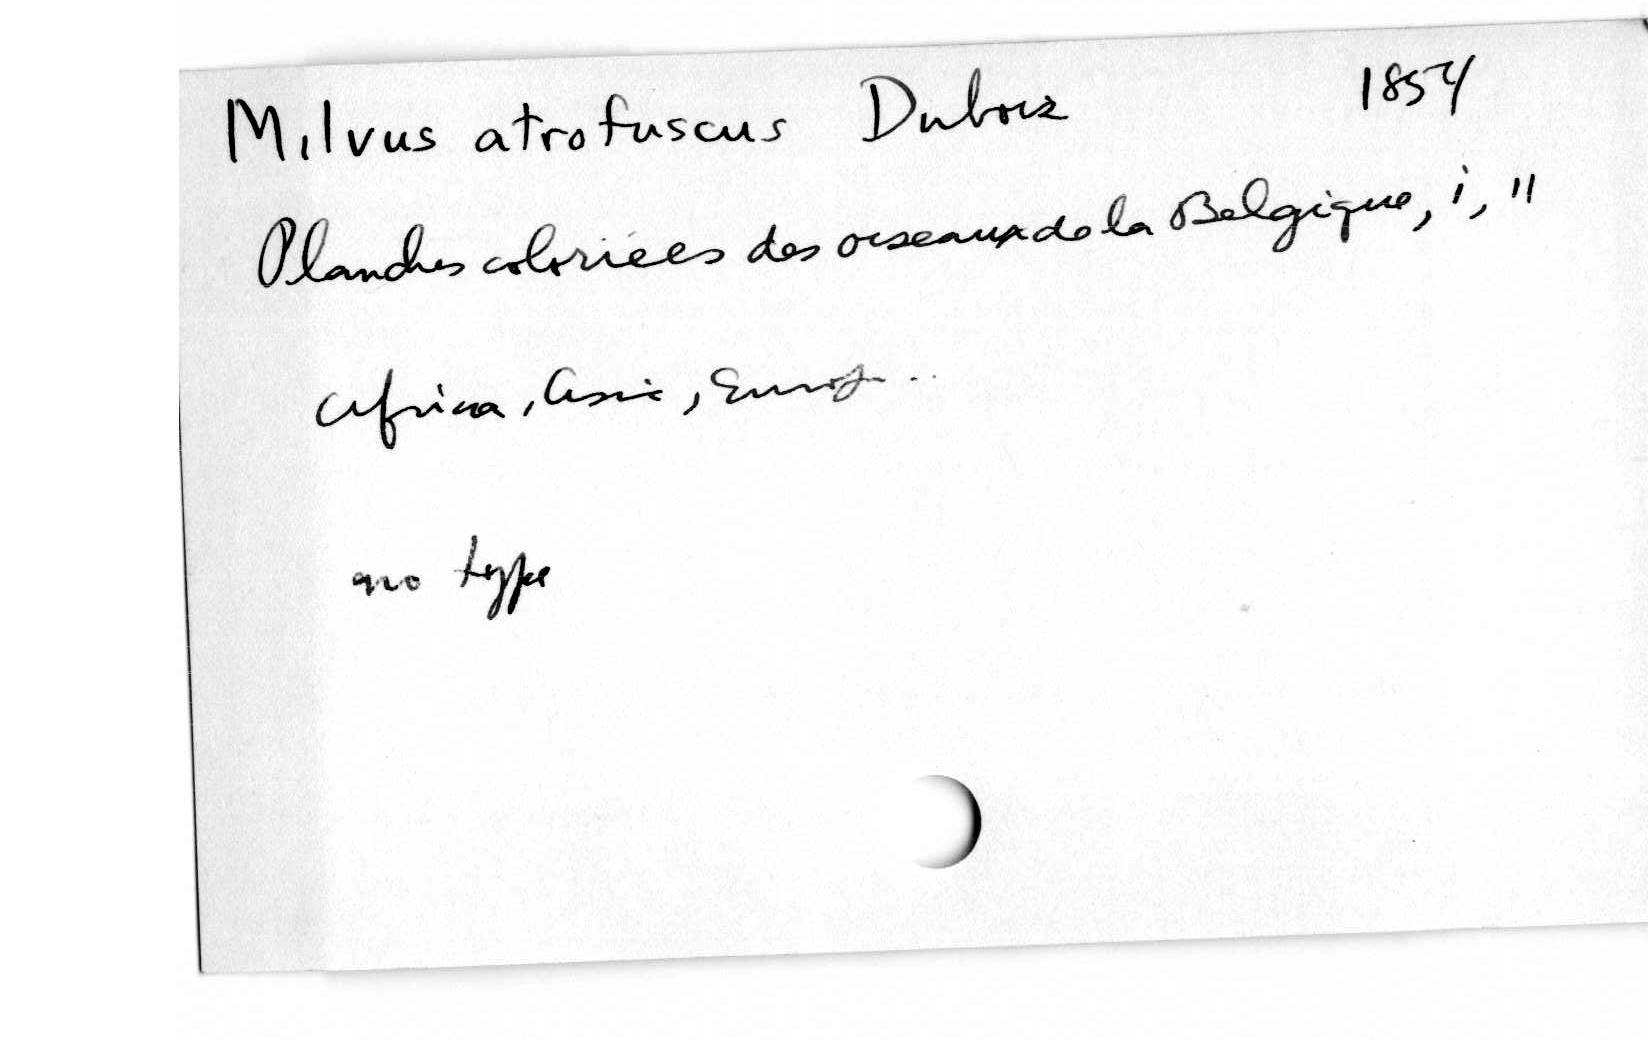 Milvus atrofuscus Dubois 1854
Planches coloriées des oiseaux de la Belgique, i, 11
Africa, Asia, Europe..
no type